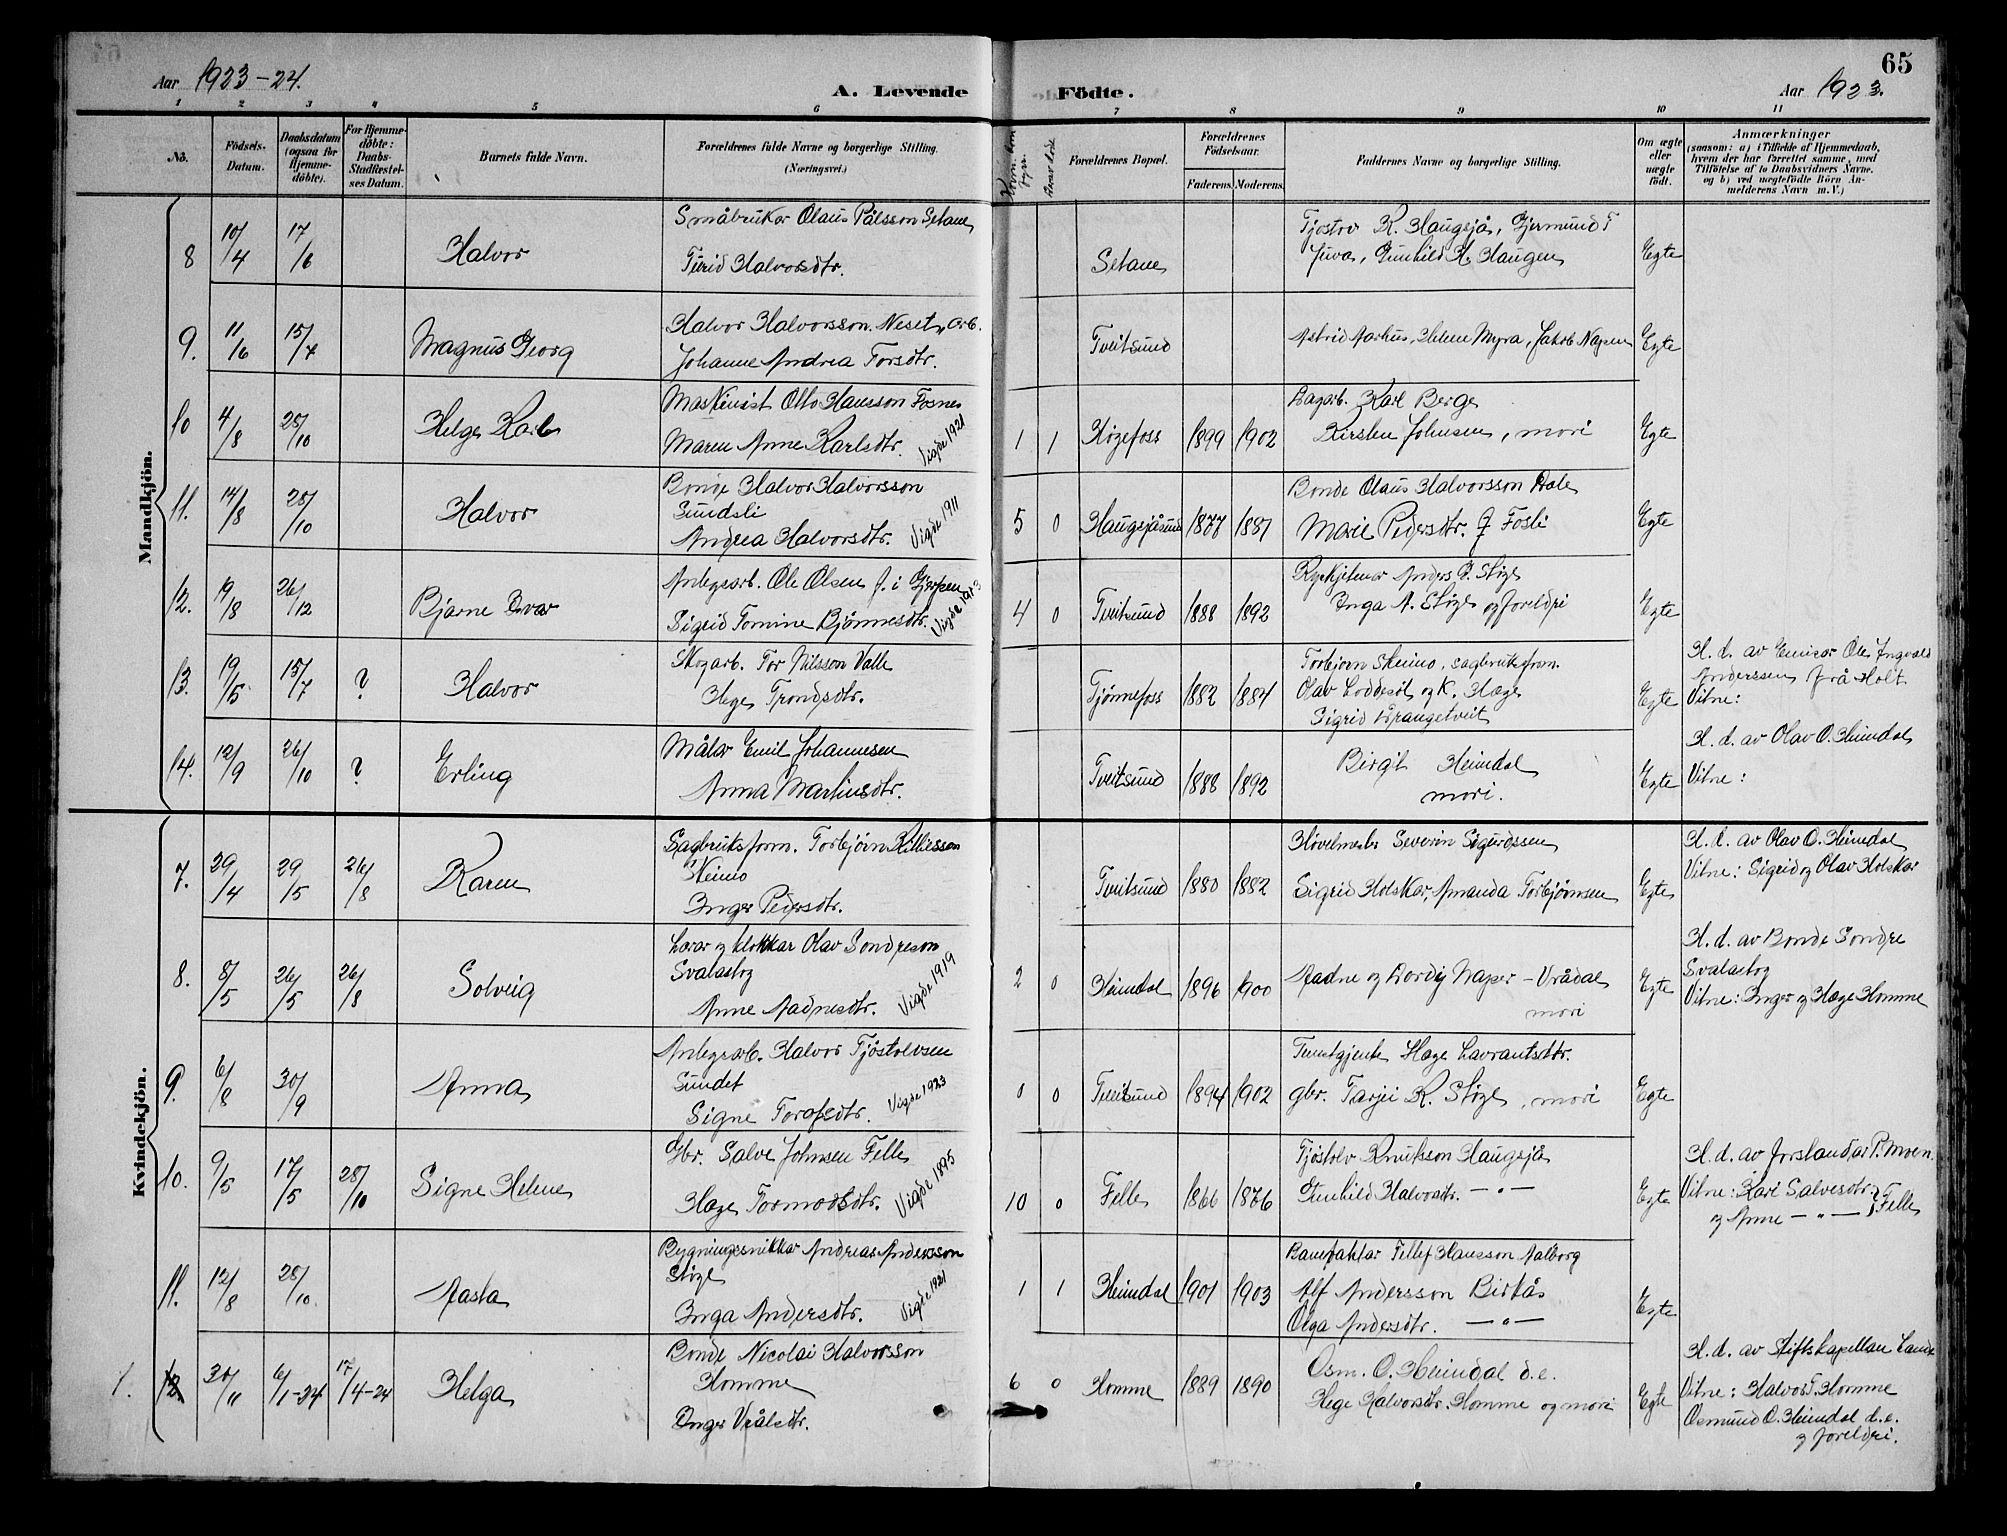 65
Aar 1923-24.
A. Levende Födte.
Aar 1923.
1 2 3 4 5 6 7 8 9 10 11
No. Födsels-Datum. Daabsdatum (ogsaa for Hjemme-döbte). For Hjemme-döbte: Daabs-Stadfæstel-ses Datum. Barnets fulde Navn. Forældrenes fulde Navne og borgerlige Stilling. (Næringsvei.) Forældrenes Bopæl. Forældrenes Födselsaar. Faderens. Moderens. Faddernes Navne og borgerlige Stilling. Om ægte eller uægte födt. Anmærkninger
(saasom: a) i Tilfælde af Hjemmedaab,
hvem der har forrettet samme, med
Tilföielse af to Daabsvidners Navne.
og b) ved uægtefödte Börn An-
melderens Navn m. V.)
Mandkjön.
8 10/4 17/6 Halvor Småbrukar Olaus Pålsson Setane
Turid Halvorsdtr. Setane Tjostov K. Haugsjå, Gjermund T
Juva, Gunhild H. Haugen Egte
9. 11/6 15/7 Magnus Georg Halvor Halvorsson Neset, arb.
Johanne Andrea Torsdtr. Tveitsund Astrid Aarhus, Helene Myra, Jakob Napen Egte
10 4/8 28/10 Helge Karl Maskinist Otto Hansson Fosnes
Maren Anne Karlsdtr. Vigde 1921 1 1 Høgefoss 1899 1902 Lagarb. Karl Berge
Kirsten Johnsen, mori Egte
11. 14/8 28/10 Halvor Bonde Halvor Halvorsson
Sundsli
Andrea Halvorsdtr. Vigde 1911 5 0 Haugsjåsund 1877 1887 Bonde Olaus Halvorsson Dale
Marie Pedersdtr. f Fosli Egte
12. 19/8 26/12 Bjarne Ivar Anlegsarb. Ole Olsen f. i Gjerpen
Sigrid Tomine Bjönnesdtr. Vigde 1913 4 0 Tveitsund 1888 1892 Anders G. Stige
Inga A. Stige og foreldri Egte
13. 19/5 15/7 ? Halvor Skogarb. Tor Nilsson Valle
Hege Trondsdtr. Tjønnefoss 1882 1884 Torbjörn Skeimo, sagbruksform.
Olav Loddesöl og K. Hæge
Sigrid Drangetveit Egte H. d. av Emisær Ole Ingvald
Anderssen frå Holt
Vitne:
14. 12/9 26/10 ? Erling Målar Emil Johannesen
Anna Martinsdtr. Tveitsund 1888 1892 Birgit Heimdal
mori. Egte H. d. av Olav O. Heimdal
Vitne:
Kvindekjön.
7. 29/4 29/5 26/8 Karen Sagbruksform. Torbjörn Killiesson
Skeimo
Inger Pedersdtr. Tveitsund 1880 1882 Høvelmester Severin Sigurdssen
Sigrid Holskar, Amanda Torbjörnsen Egte H. d. av Olav O. Heimdal
Vitne: Sigrid og Olav Holskar
8. 8/5 26/5 26/8 Solveig Lærar og klokkar Olav Sondreson
Svalastog
Anne Aadnesdtr. Vigde 1919 2 0 Heimdal 1896 1900 Aadne og Bordig Napper - Vrådal
mori Egte H. d. av Bonde Sondre
Svalastog
Vitne: Inger og Hæge Homme
9. 6/8 30/9 Anna Anlegsarb. Halvor Tjöstolvsen
Sundet
Signe Torafsdtr. Vigde 1923 0 0 Tveitsund 1894 1902 Tenestgjente Hæge Lavrantsdtr.
gbr. Tarjei K. Stige, mori Egte
10. 9/5 17/5 28/10 Signe Helene Gbr. Salve Johnsen Felle
Hæge Tormodsdtr. Vigde 1895 10 0 Felle 1866 1876 Tjöstolv Knutsson Haugsjå
Gunhild Halvorsdtr. — " — Egte H. d. av forstandar P. Moen.
Vitne: Kari Salvesdtr.
og Anne — " — } Felle
11. 12/8 28/10. Aasta Bygningssnikkar Andreas Andersson
Stige
Inga Andersdtr. Vigde 1921 1 1 Heimdal 1901 1903 Banevaktar Tellef Hansson Aalborg
Alf Andersson Birkås
Olga Andersdtr. — " — Egte
1. 12. 30/11 6/1-24 17/4-24 Helga Bonde Nicolai Halvorsson
Homme
Inger Vrålsdtr. 6 0 Homme 1889 1890 Osm. O. Heimdal d.e.
Hege Halvorsdtr. Homme og mori Egte H. d. av Stiftskapellan Lande
Vitne: Halvor T. Homme
Osmund O. Heimdal d.e.
og foreldri.